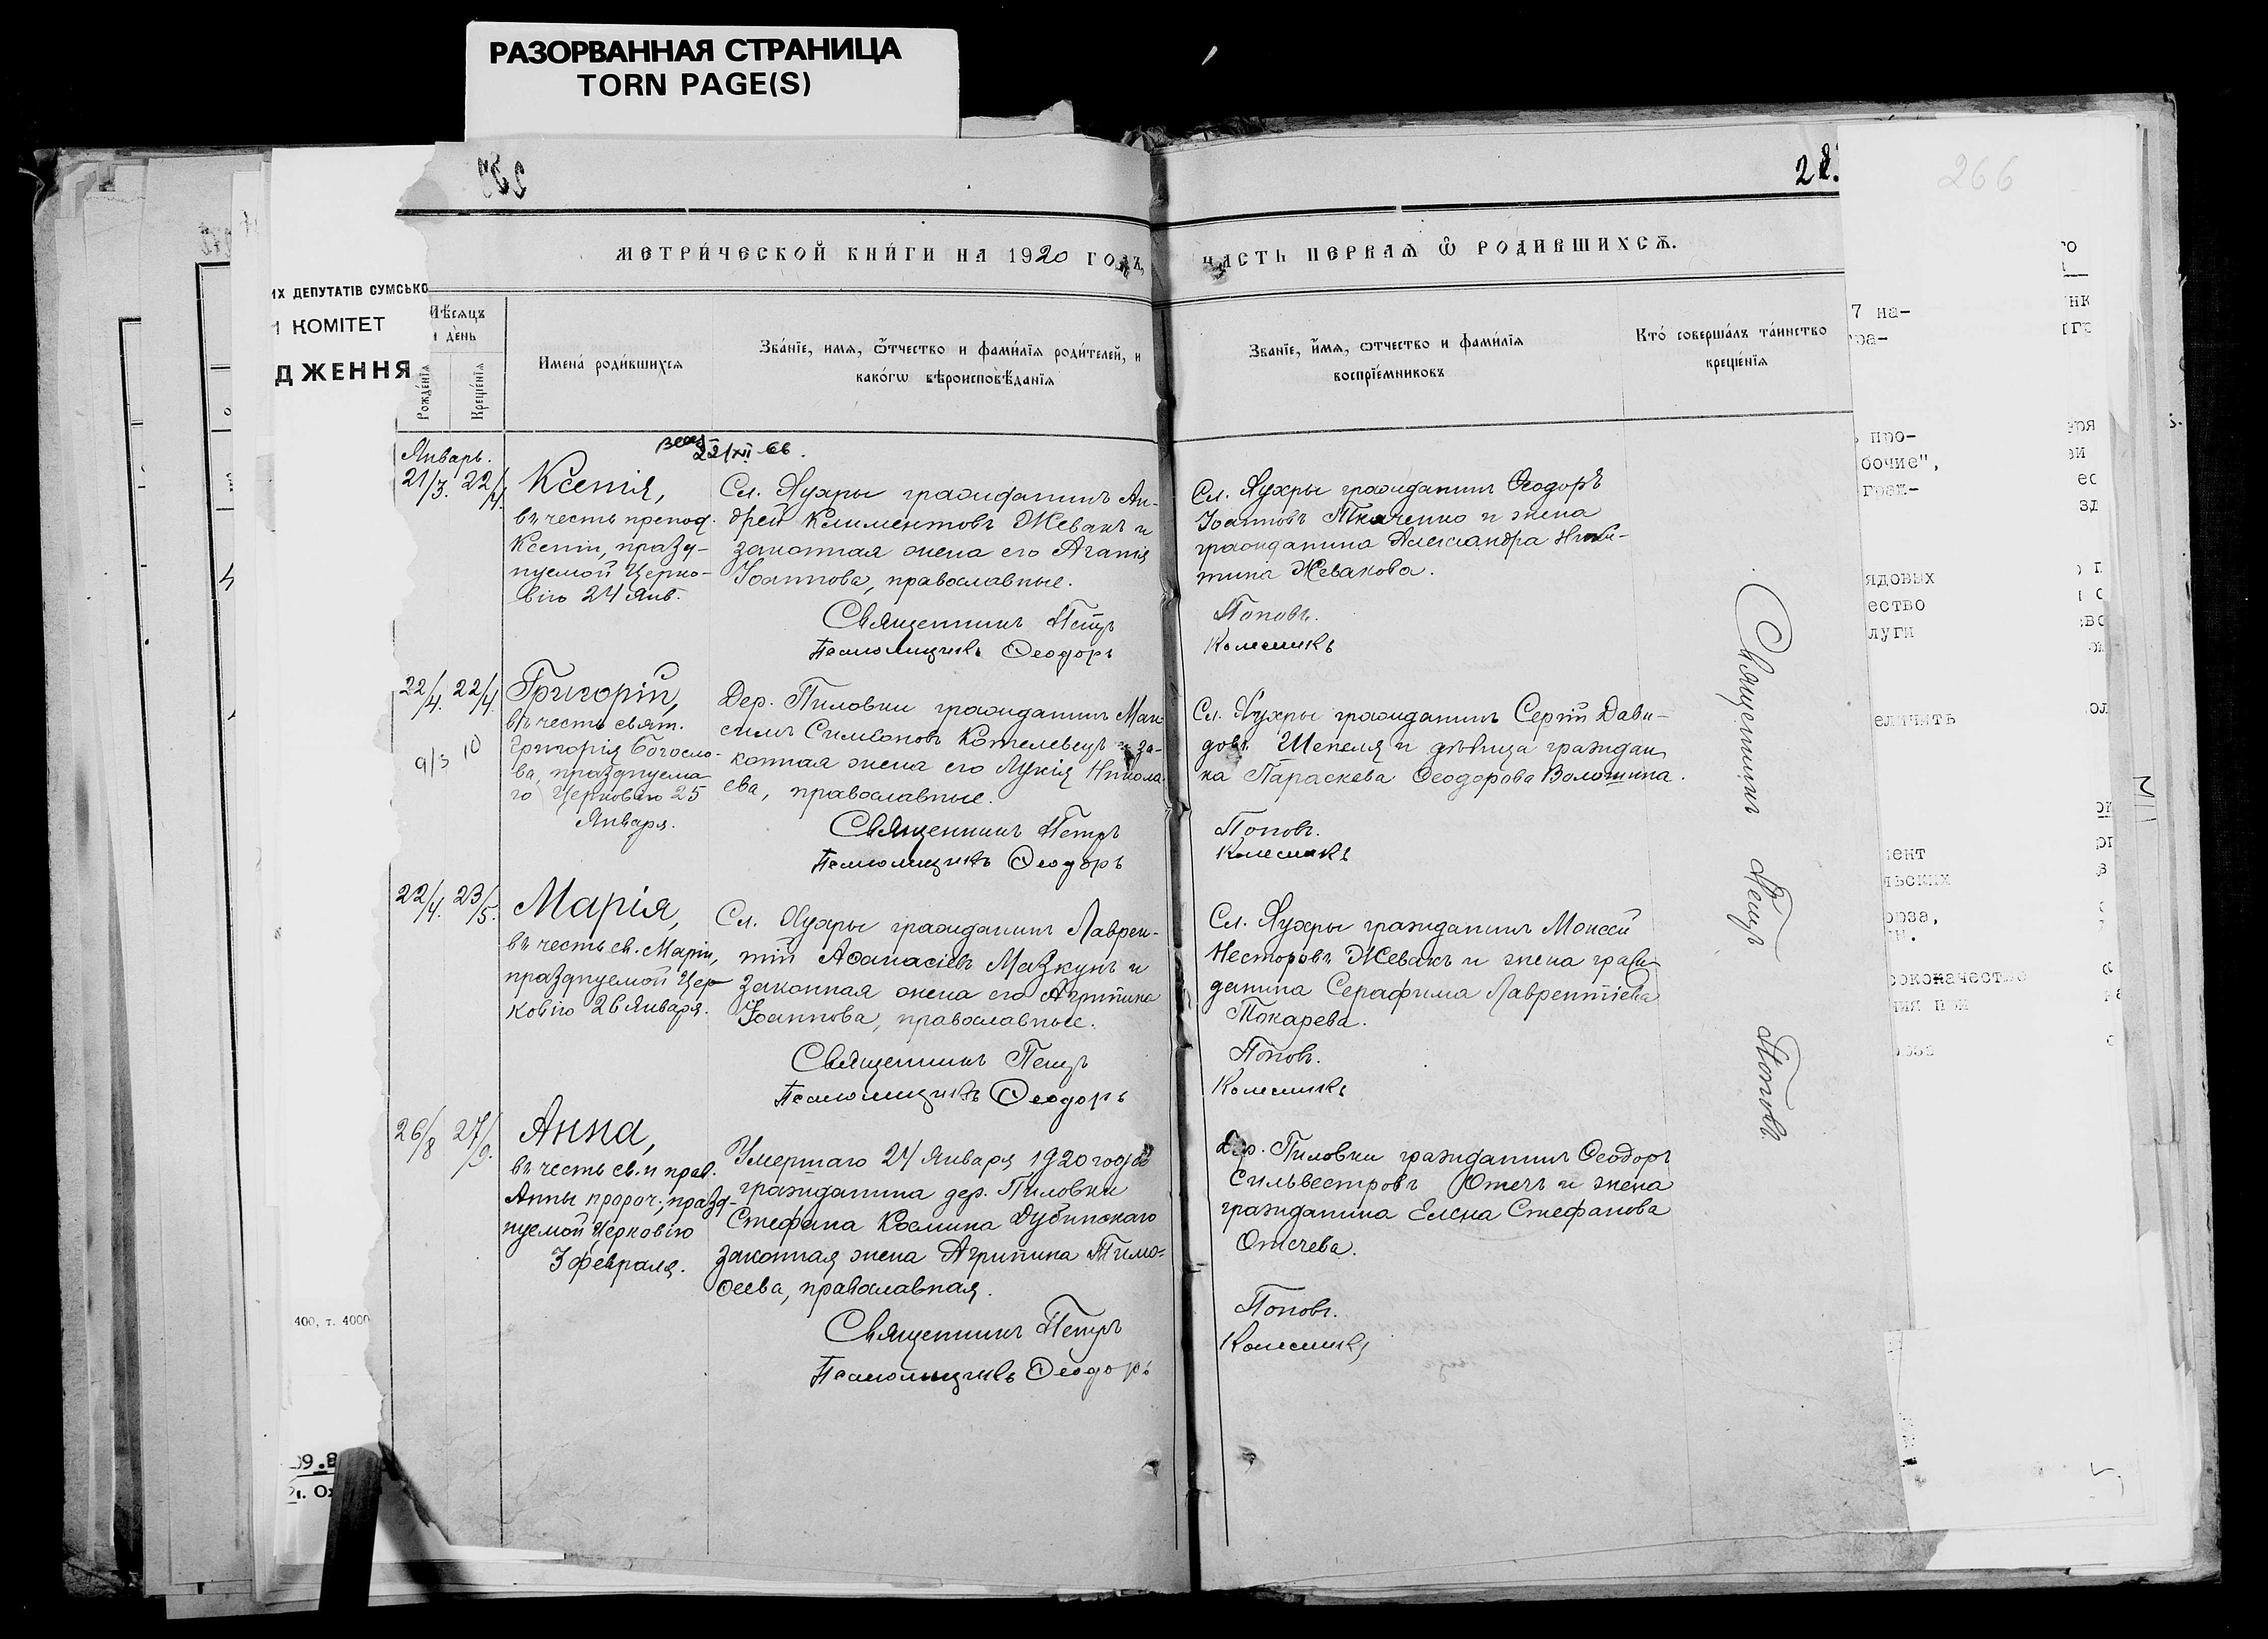 РАЗОРВАННАЯ СТРАНИЦА
TORN PAGE(S)
266
МЕТРИ́ЧЕСКОЙ КНИ́ГИ НА 1920 ГОДЪ,
ЧАСТЬ ПЕРВАѦ Ѡ҃ РОДИВШИХСѦ.
ИХ ДЕПУТАТІВ СУМСЬКО
КОМІТЕТ
ДЖЕННЯ
Мѣсяцъ
и де́нь
Рожде́нїя
Креще́нїя
Имена̀ роди́вшихсѧ
Зва́нїе, имѧ, ѻ҆́тчество и фами́лїѧ роди́телей, и
како́гѡ вѣроисповѣ́данїѧ
Зва́нїе, и҆́мѧ, ѻтчество и фами́лїѧ
воспрїе́мниковъ
Кто̀ соверша́лъ та́инство
креще́нїѧ
Январь.
21/3. 22/4.
22/XII-66.
Ксенія,
въ честь препод.
Ксеніи, празд-
нуемой Церко-
вію 24 Янв.
Сл. Лухры гражданинъ Ан-
дрей Климентовъ Жевакъ и
законная жена его Агапія
Іоаннова, православные.
Священникъ Петръ
Псаломщикъ Ѳеодоръ
Сл. Лухры гражданинъ Ѳеодоръ
Іоанновъ Ткаченко и жена
гражданина Александра Ники-
тина Жевакова.
Поповъ.
Колесникъ
22/4. 22/4.
9/3 10
Григорій,
въ честь свят.
Григорія Богосло-
ва, празднуема-
го Церковію 25
Января.
Дер. Пиловки гражданинъ Мак-
симъ Симеоновъ Котелевецъ и за-
конная жена его Лукія Никола-
ева, православные.
Священникъ Петръ
Псаломщикъ Ѳеодоръ
Сл. Лухры гражданинъ Сергій Дави-
довъ Шепеля и дѣвица граждан-
ка Параскева Ѳеодорова Волошина.
Поповъ.
Колесникъ
22/4. 23/5.
Марія,
въ честь св. Маріи,
празднуемой Цер-
ковію 26 Января.
Сл. Лухры гражданинъ Лаврен-
тій Аѳанасіевъ Мазкунъ и
законная жена его Агрипина
Іоаннова, православные.
Священникъ Петръ
Псаломщикъ Ѳеодоръ
Сл. Лухры гражданинъ Моисей
Несторовъ Жевакъ и жена граж-
данина Серафима Лаврентіева
Токарева.
Поповъ.
Колесникъ
26/8 27/9.
Анна,
въ честь св. и прав.
Анны пророч., празд-
нуемой Церковію
3 февраля.
Умершаго 24 Января 1920 года
гражданина дер. Пиловки
Стефана Космина Дубинскаго
законная жена Агрипина Тимо-
ѳеева, православная.
Священникъ Петръ
Псаломщикъ Ѳеодоръ
Дер. Пиловки гражданинъ Ѳеодоръ
Сильвестровъ Отечъ и жена
гражданина Елена Стефанова
Отечева.
Поповъ.
Колесникъ
Священникъ Петръ Поповъ
7 на-
про-
бочие",
граж-
ядовых
ество
луги
ент
льских
400, т. 4000